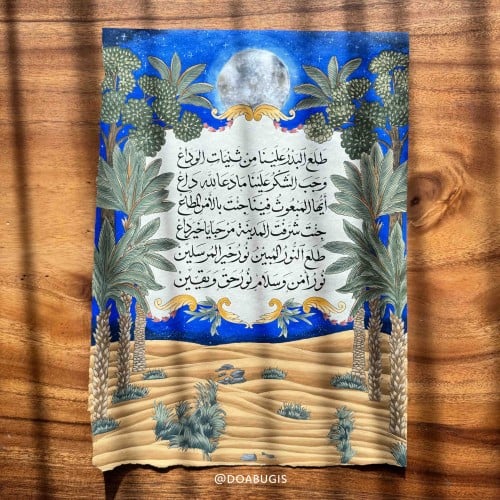 طلع البدر علينا من ثنيات الوداع
وجب الشكر علينا ما دعا لله داع
أيها المبعوث فينا جئت بالأمر المطاع
جئت شرفت المدينة مرحبا يا خير داع
طلع النور المبين نور خير المرسلين
نور أمن وسلام نور حق ويقين
@DOABUGIS